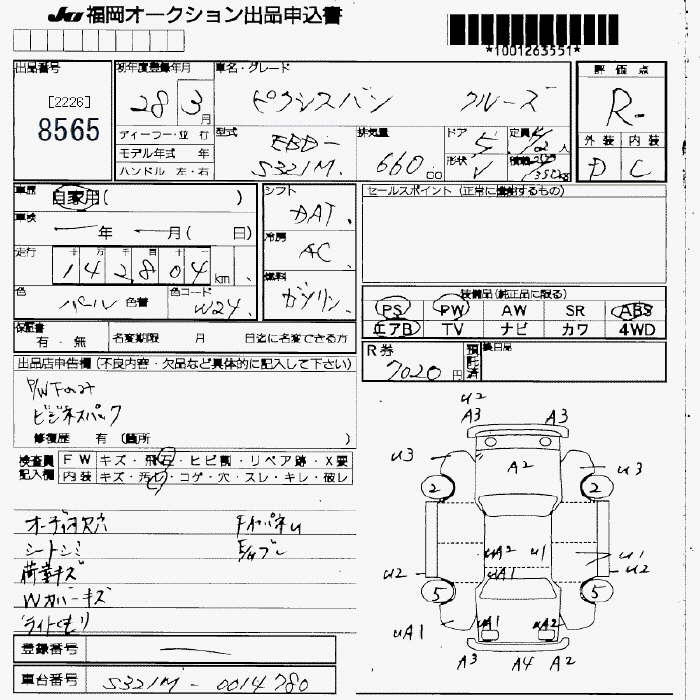 JU 福岡オークション出品申込書
*1001263551*
出品番号
[2226]
8565
初年度登録年月
28 3月
車名・グレード
ピクシスバン クルーズ
評価点
R-
外装 内装
D C
ディーラー・並行
モデル年式 年
ハンドル 左・右
型式
EBD-
S321M
排気量
660 cc
ドア
5
形状
V
定員
人
積載
車歴
自家用( )
車検
年 月( 日)
走行
142804 km
色
パール 色替
色コード
W24
シフト
DAT
冷房
AC
燃料
ガソリン
セールスポイント (正常に機能するもの)
装備品(純正品に限る)
PS PW AW SR ABS
エアB TV ナビ カワ 4WD
保証書
有・無
名変期限 月 日迄に名変できる方
R券
7020円
預託済
後日品
出品店申告欄(不良内容・欠品など具体的に記入して下さい)
P/W Fのみ
ビジネスパック
修復歴 有(箇所 )
検査員記入欄
FW キズ・飛石・ヒビ割・リペア跡・X要
内装 キズ・汚レ・コゲ・穴・スレ・キレ・破レ
オーディオ穴
シートシミ
荷室キズ
Wカバーキズ
ライトくもり
u2
A3 A3
u3 A2 u3
2 2
uA2 u1 u1
u2 uA1 u2
5 5
uA1 uA1 uA2
A3 A4 A2
登録番号
車台番号 S321M-0014780